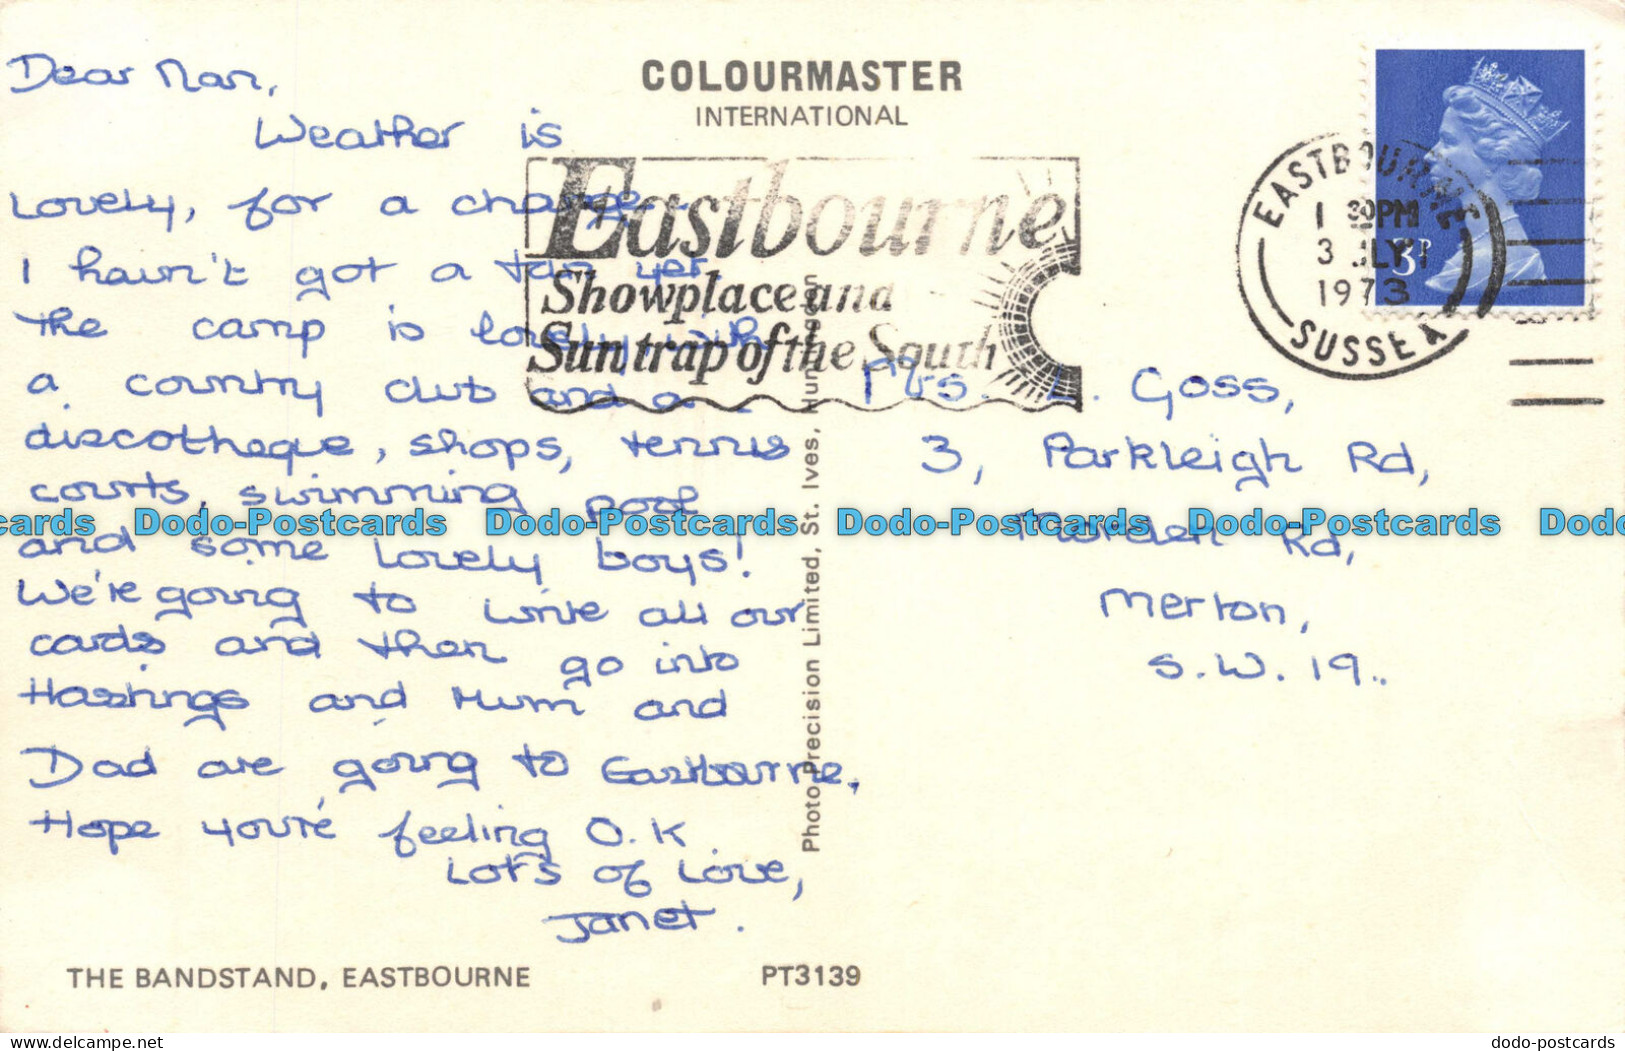 Dear Nan,
Weather is
lovely, for a change.
I havn't got a tan yet.
The camp is lovely, with
a country club and a
discotheque, shops, tennis
courts, swimming pool
and some lovely boys!
We're going to write all our
cards and then go into
Hastings and Mum and
Dad are going to Eastbourne.
Hope you're feeling O.K
Lot's of Love,
Janet.
THE BANDSTAND, EASTBOURNE
COLOURMASTER
INTERNATIONAL
Eastbourne
Showplace and
Sun trap of the South
Photo Precision Limited, St. Ives, Huntingdon
PT3139
EASTBOURNE
1 30PM
3 JLY
1973
SUSSEX
3P
Mrs. L. Goss,
3, Parkleigh Rd,
Morden Rd,
Merton,
S.W. 19..
cards Dodo-Postcards Dodo-Postcards Dodo-Postcards Dodo-Postcards Dodo
delcampe.net
dodo-postcards